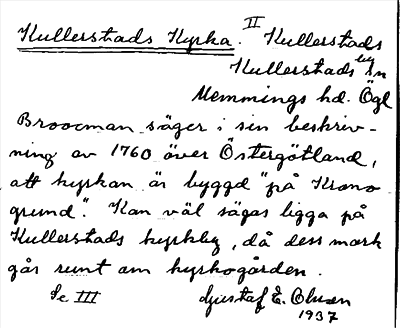 Kullerstads Kyrka. II Kullerstads
Kullerstads by sn
Memmings hd. Ögl
Broocman säger i sin beskriv-
ning av 1760 över Östergötland,
att kyrkan är byggd "på Krono
grund". Kan väl sägas ligga på
Kullerstads kyrkby, då dess mark
går runt om kyrkogården.
Se III Gustaf E. Olsson
1937